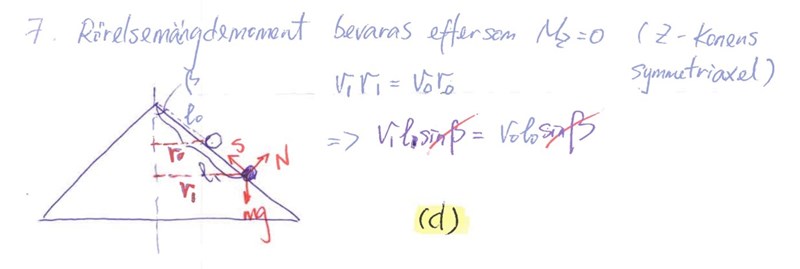 7. Rörelsemängdsmoment bevaras eftersom Mz=0 (z-konens symmetriaxel)
v₁r₁ = v₀r₀
=> v₁l₁sinβ = v₀l₀sinβ
β
l₀
r₀
S
N
l₁
r₁
mg
(d)